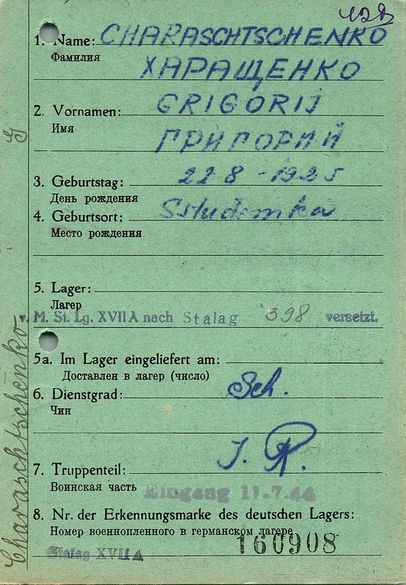 128
1. Name: CHARASCHTSCHENKO
Фамилия
ХАРАЩЕНКО
2. Vornamen: GRIGORIJ
Имя
ГРИГОРИЙ
3. Geburtstag: 22 8 - 1925
День рождения
4. Geburtsort: Studemka
Место рождения
5. Lager:
Лагер
v. M. St. Lg. XVII A nach Stalag 398 versetzt.
5a. Im Lager eingeliefert am:
Доставлен в лагер (число)
6. Dienstgrad: Sch.
Чин
7. Truppenteil: J. R.
Воинская часть
Eingang 11-7.44
8. Nr. der Erkennungsmarke des deutschen Lagers:
Номер военнопленного в германском лагере
160908
Stalag XVII A
Charaschtschenko G